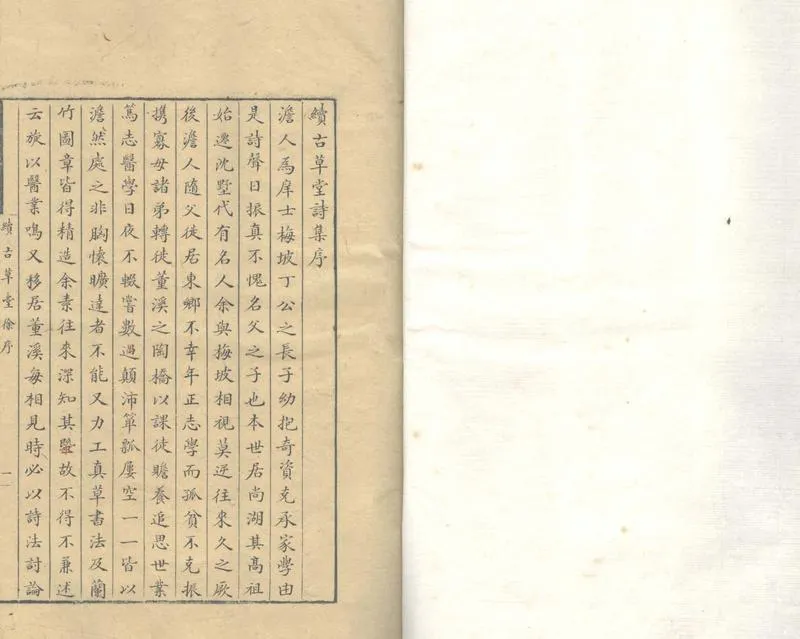 續古草堂詩集序
澹人為庠士梅坡丁公之長子幼抱奇資克承家學由
是詩聲日振真不愧名父之子也本世居尚湖其高祖
始遷沈墅代有名人余與梅坡相視莫逆往來久之厥
後澹人隨父徙居東鄉不幸年正志學而孤貧不克振
携寡母諸弟轉徙董溪之陶橋以課徒贍養追思世業
篤志醫學日夜不輟嘗數過顛沛簞瓢屢空一一皆以
澹然處之非胸懷曠達者不能又力工真草書法及蘭
竹圖章皆得精造余素往來深知其故不得不兼述
云旋以醫業鳴又移居董溪每相見時必以詩法討論
續古草堂徐序
一